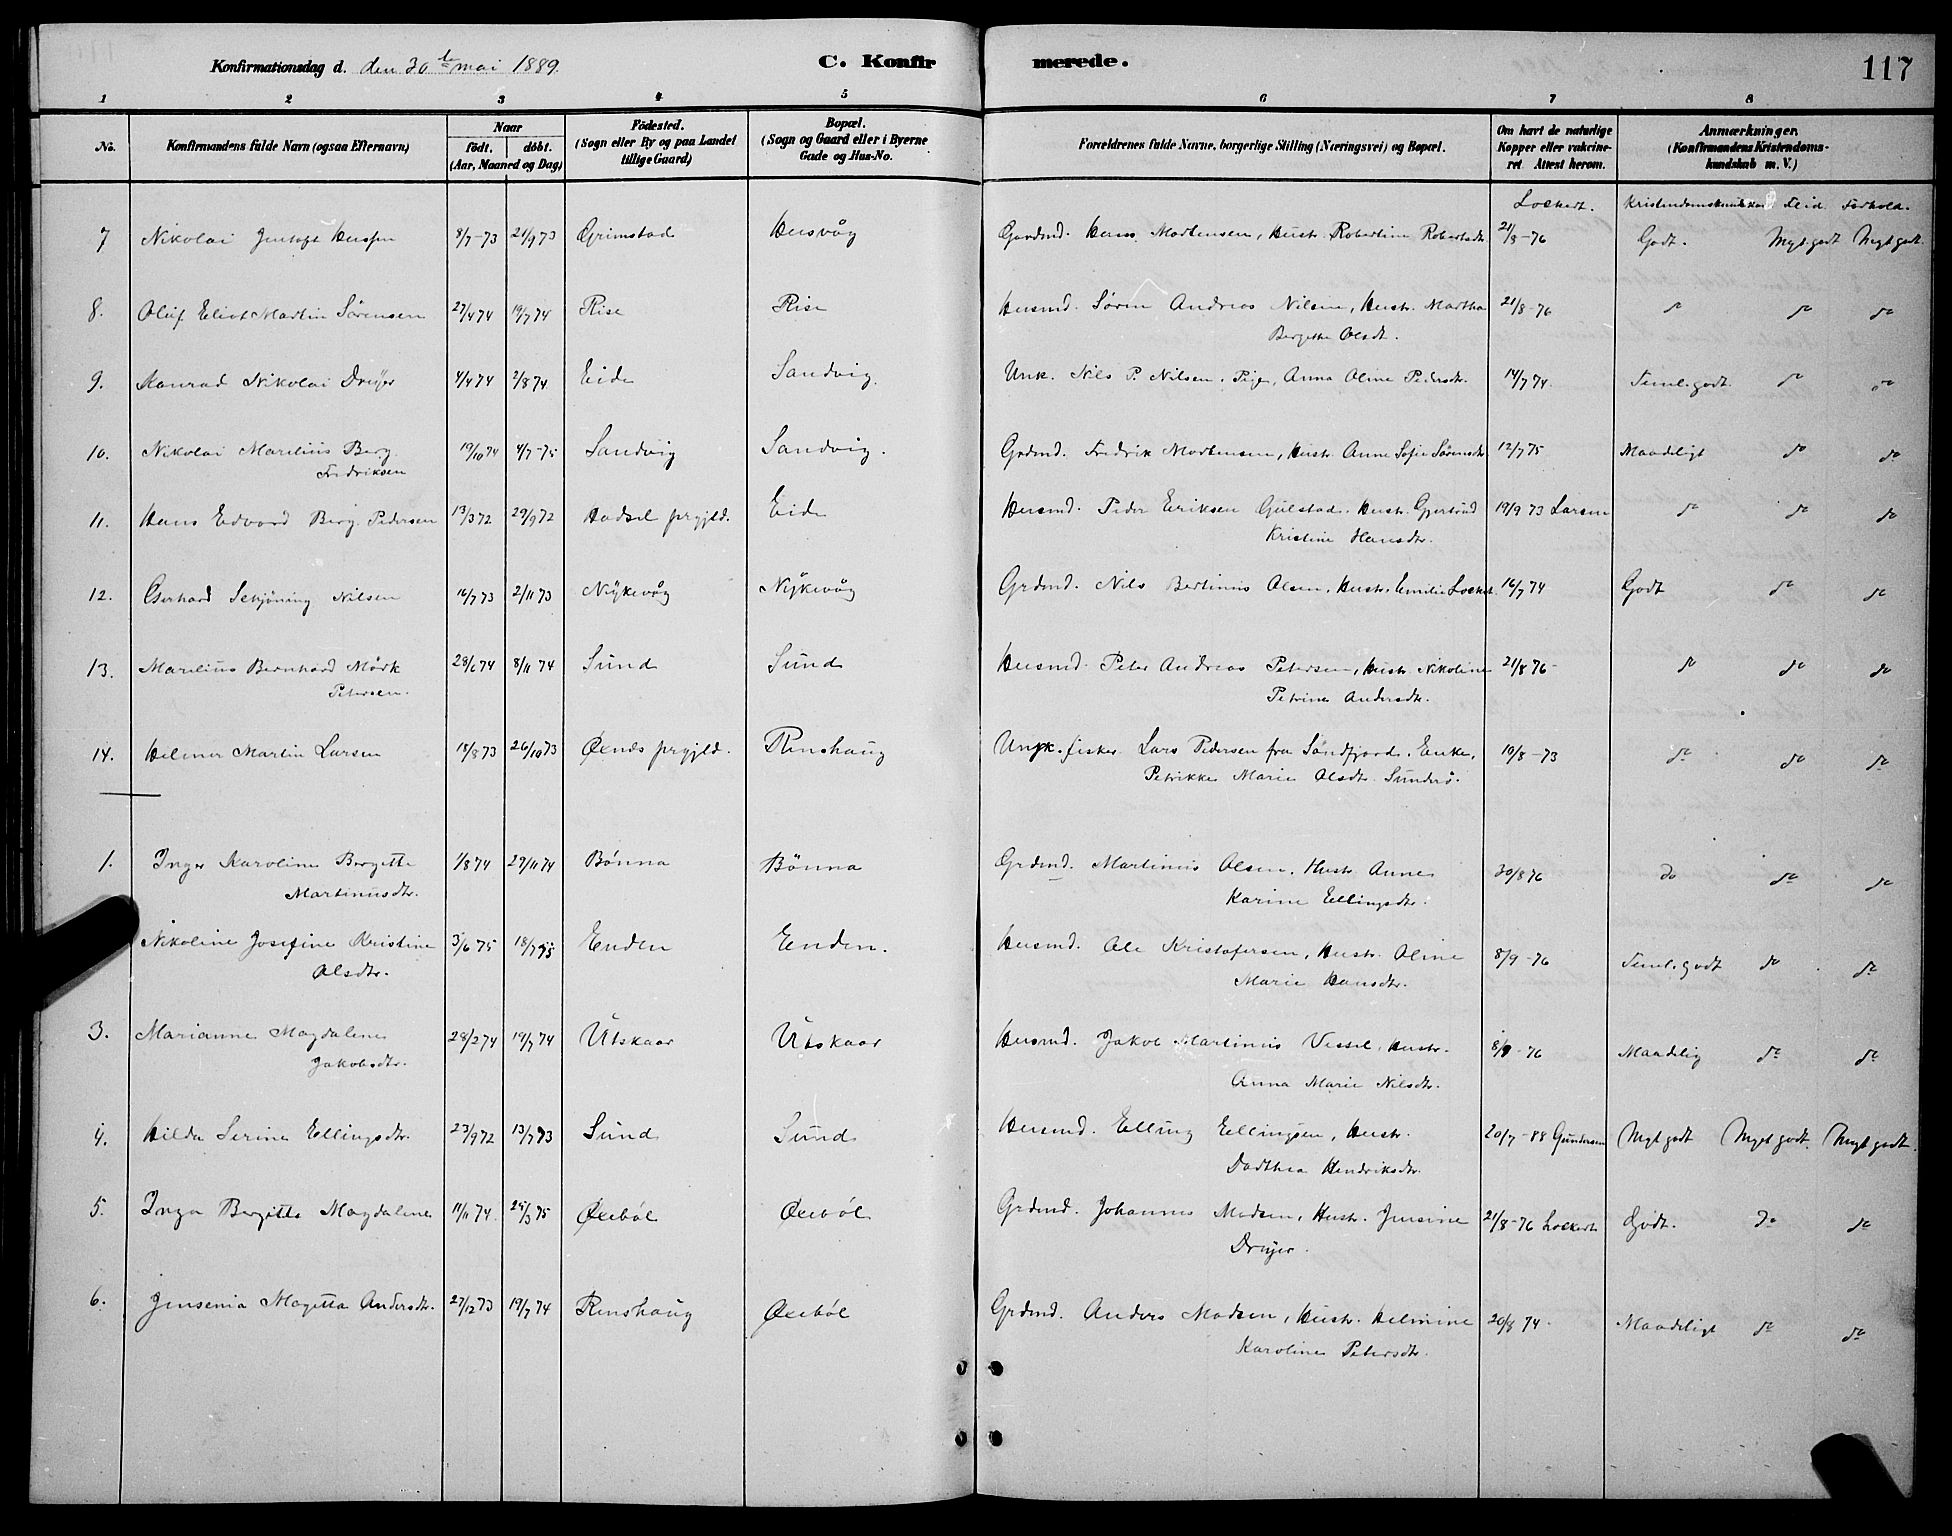 Konfirmationsdag d. den 30te mai 1889.
C. Konfirmerede.
117
1 2 3 4 5 6 7 8
No.
Konfirmandens fulde Navn (ogsaa Efternavn)
Naar
födt. döbt.
(Aar, Maaned og Dag)
Födested.
(Sogn eller By og paa Landet
tillige Gaard)
Bopæl.
(Sogn og Gaard eller i Byerne
Gade og Hus-No.
Forældrenes fulde Navne, borgerlige Stilling (Næringsvei) og Bopæl.
Om havt de naturlige
Kopper eller vakcine-
ret. Attest herom.
Anmærkninger.
(Konfirmandens Kristendoms-
kundskab m. V.)
Lockert. Flid Forhold.
7 Nikolai Jentoft 8/7-73 21/9 73 Grimstad Husvåg Gaardmd. Hans Mortensen, Hustr. Robertine Robertsdtr 21/8-76 Godt. Mgt. godt Mgt godt.
8. Oluf Eliot Martin Sörensen 27/4 74 19/7 74 Rise Rise Husmd. Sören Andreas Nilsen, Hustr. Martha 21/8-76 do do do
Bergette Olsdt.
9. Konrad Nikolai Dreyer 4/4 74 2/8 74 Eide Sandvig. Unk. Nils P. Nilsen. Pige, Anna Oline Pedersdtr. 14/7 74. Teml. godt. do do
10. Nikolai Marelius Berg 19/10 74 4/7-75 Sandvig Sandvig. Grdmd. Fredrik Mortensen, Hustr. Anne Sofie Sörensdtr 12/7 75 Maadeligt do do
Fredriksen
11. Hans Edvard Berg Pedersen 13/3 72 29/9 72 Hadsel prgjld. Eide Husmd. Peder Eriksen Gulstad. Hustr. Gjertrud 19/9 73 Larsen do do do
Kristine Hansdtr.
12. Gerhard Schjöning Nilsen 16/7 73 2/11 73 Nykevåg Nykevåg Grdmd. Nils Bertinus Olsen, Hustr. Emilie Lockert. 16/7 74 Godt do do
13. Marelius Bernhard Mörk 28/6 74 8/11 74 Sund Sund Husmd. Peter Andreas Petersen, Hustr. Nikoline 21/8 76- do do do
Petersen. Petrine Andersdtr.
14. Helmer Martin Larsen 18/8 73 26/10 73 Öxnes prgjld. Rinshaug Ungk. fisker Lars Pedersen fra Söndfjord. Enke, 10/8-73 do do do
Petrikke Marie Olsdtr. Sunderö.
1. Inger Karoline Bergette 1/8 74 29/11 74 Bönna Bönna Grdmd. Martinus Olsen. Hustr. Anne 30/8 76 do do do
Martinusdtr. Karine Ellingsdtr.
Nikoline Josefine Kristine 3/6 75 18/7 75 Enden Enden. Husmd. Ole Kristofersen, Hustr. Oline 8/9-76 Teml. godt do do
Olsdtr. Marie Hansdtr.
3. Marianne Magdalene 28/2 74 19/7 74 Utskaar Utskaar Husmd. Jakob Martinus Vessel, Hustr. 8/9-76 Maadelig do do
Jakobsdtr. Anna Marie Nilsdtr.
4. Hilda Serine Ellingsdtr. 23/9 72 13/7 73 Sund Sund Husmd. Elling Ellingsen, Hustr. 20/7-88 Gundersen Mgt godt Mgt godt. Mgt godt.
Dorthea Hendriksdtr.
5. Inga Bergitte Magdalene 11/11 74. 29/3 75 Öxebøl Öxebøl Grdmd. Johannes Madsen, Hustr. Jensine 21/8-76 Lockert Godt. do do
Dreyer.
6. Jensenia Magitta Andersdtr. 27/12 73 19/7 74 Rinshaug Öxebøl Grdmd. Anders Madsen, Hustr. Helmine 20/8 74. Maadeligt do do
Karoline Petersdtr.